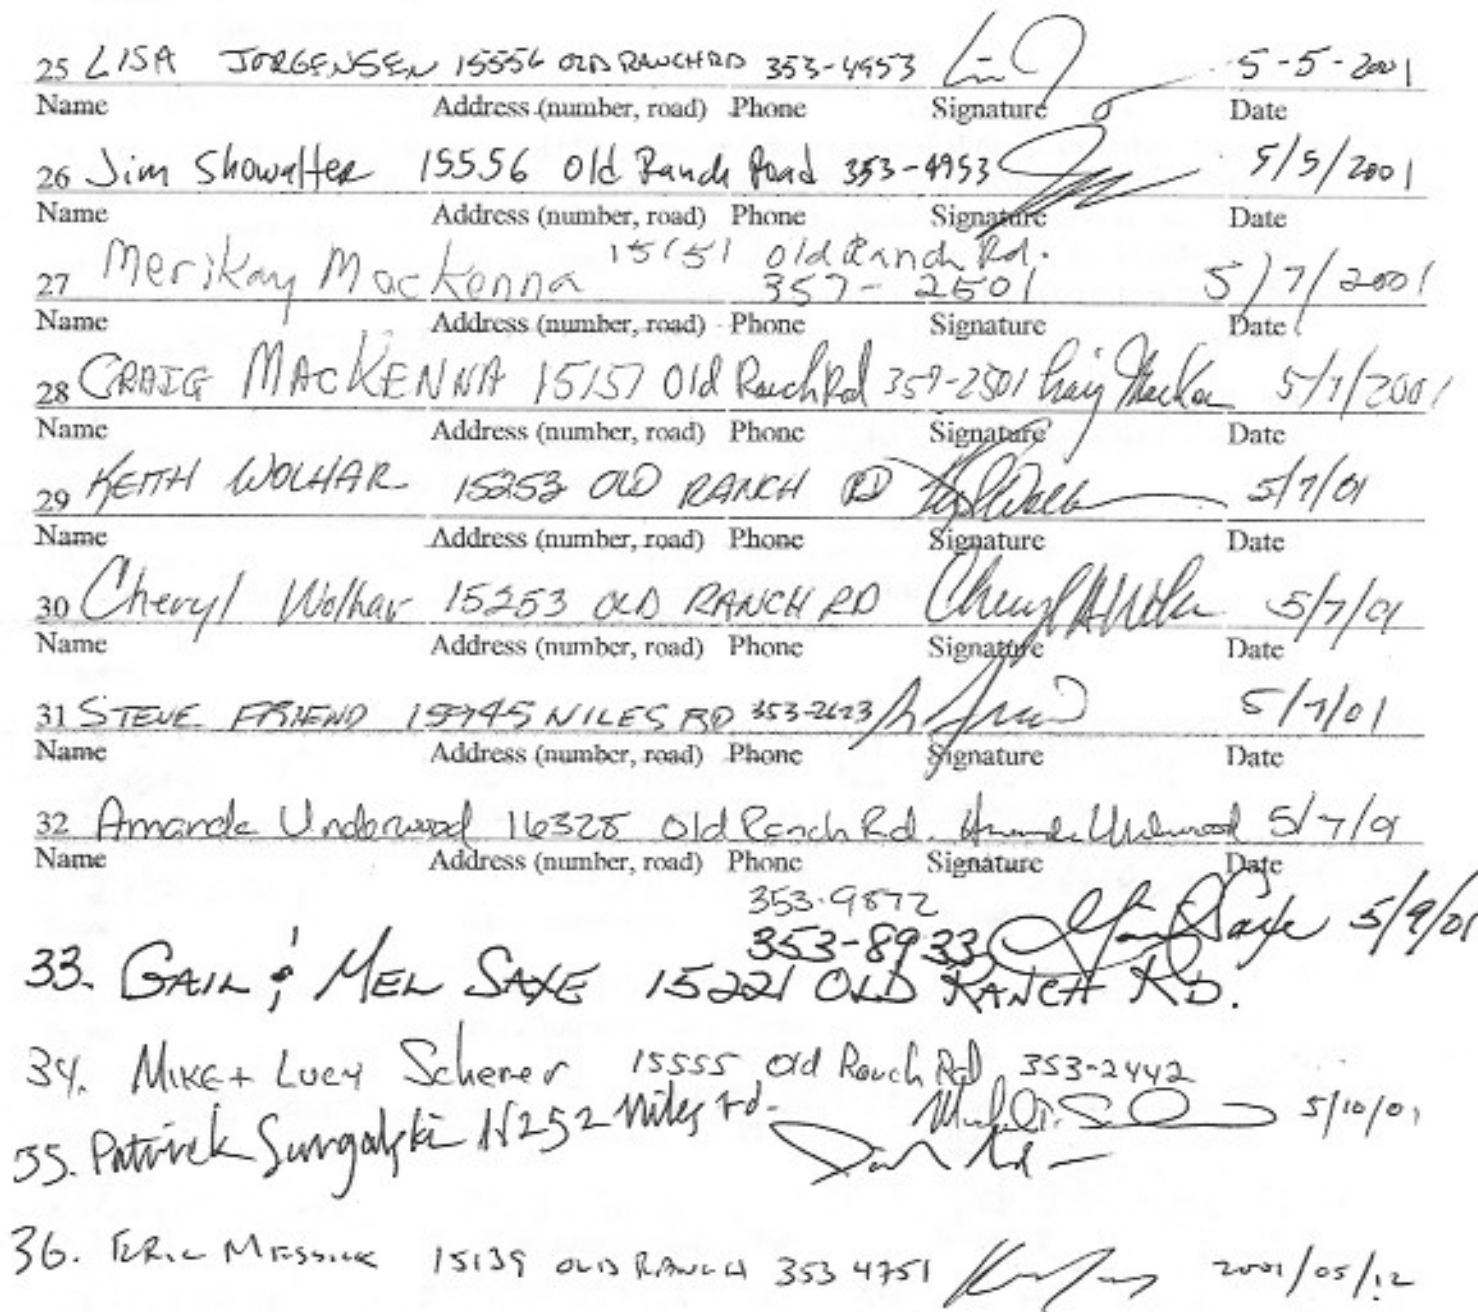 25 LISA JORGENSEN 15556 OLD RANCH RD 353-4953 5-5-2001
Name Address (number, road) Phone Signature Date
26 Jim Showalter 15556 Old Ranch Road 353-4953 5/5/2001
Name Address (number, road) Phone Signature Date
15151 Old Ranch Rd.
27 Merikay MacKenna 357-2501 5/7/2001
Name Address (number, road) Phone Signature Date
28 CRAIG MACKENNA 15151 Old Ranch Rd 357-2501 Craig MacKen 5/7/2001
Name Address (number, road) Phone Signature Date
29 KEITH WOLHAR 15253 OLD RANCH RD 5/7/01
Name Address (number, road) Phone Signature Date
30 Cheryl Wolhar 15253 OLD RANCH RD Cheryl 5/7/01
Name Address (number, road) Phone Signature Date
31 STEVE FRIEND NILES RD 353-2623 5/7/01
Name Address (number, road) Phone Signature Date
32 Amanda Underwood 16328 Old Ranch Rd. Amanda Underwood 5/7/01
Name Address (number, road) Phone Signature Date
353-9872
353-8933 5/9/01
33. GAIL & MEL SAXE 15221 OLD RANCH RD.
34. MIKE + LUCY Scherer 15555 Old Ranch Rd 353-2442 5/10/01
35. Patrick Niles rd.
36. ERIC MESSICK 15139 OLD RANCH 353 4751 2001/05/12